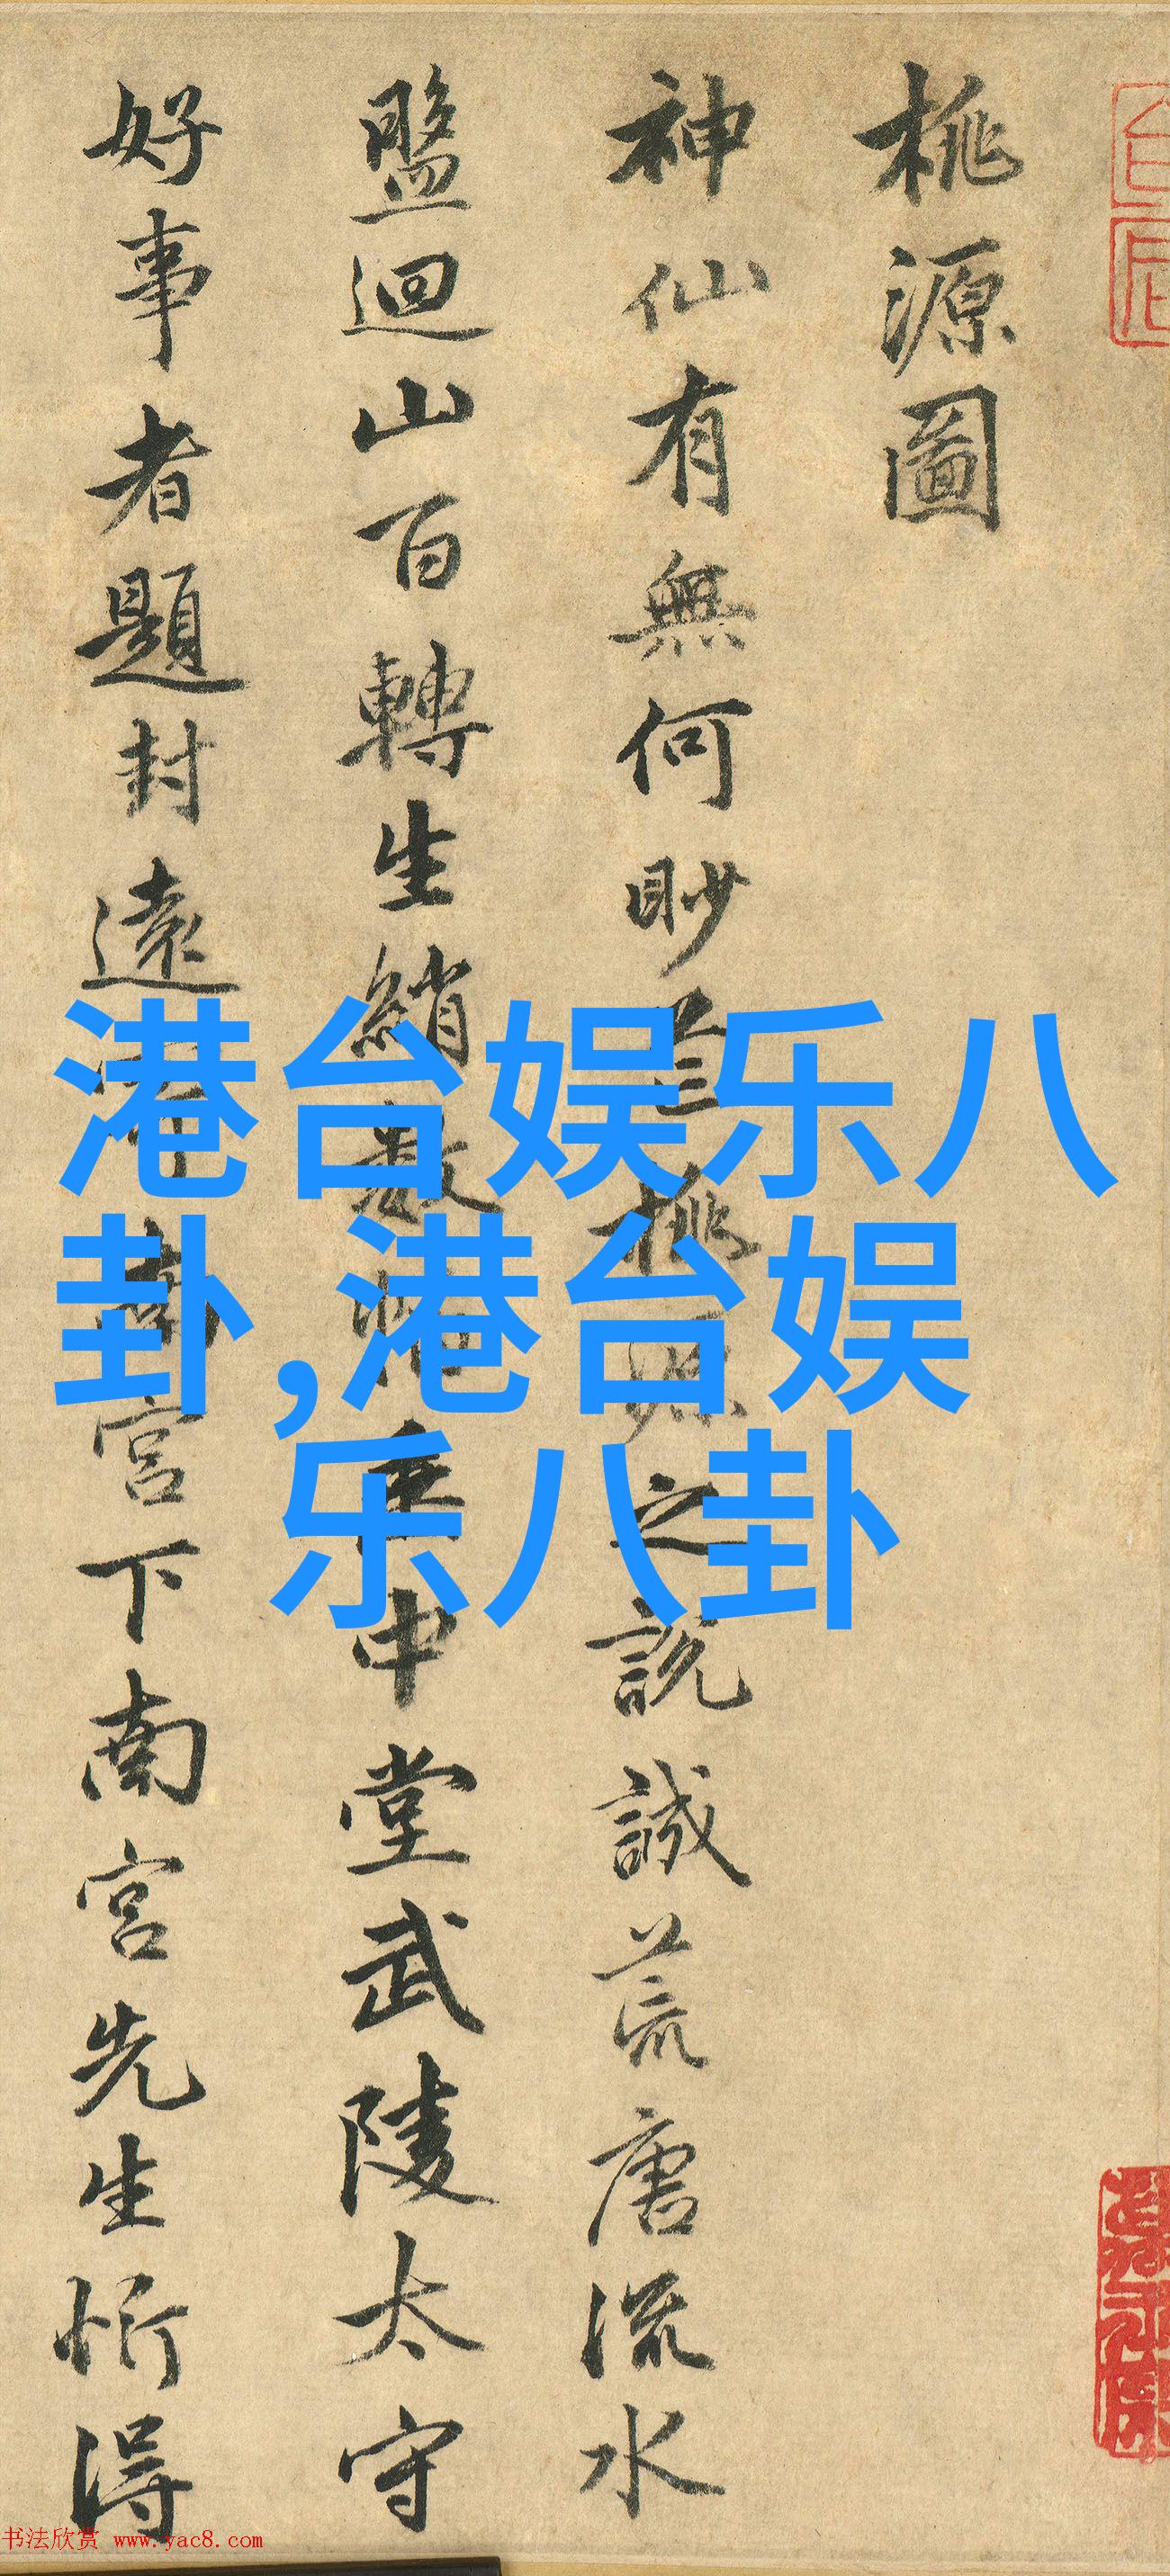 桃源圖
神仙有無何眇芒桃源之說誠荒唐流水
盤迴山百轉生綃數幅垂中堂武陵太守
好事者題封遠寄南宮下南宮先生忻得
港台娱乐八
卦,港台娱
乐八卦
书法欣赏 www.yac8.com